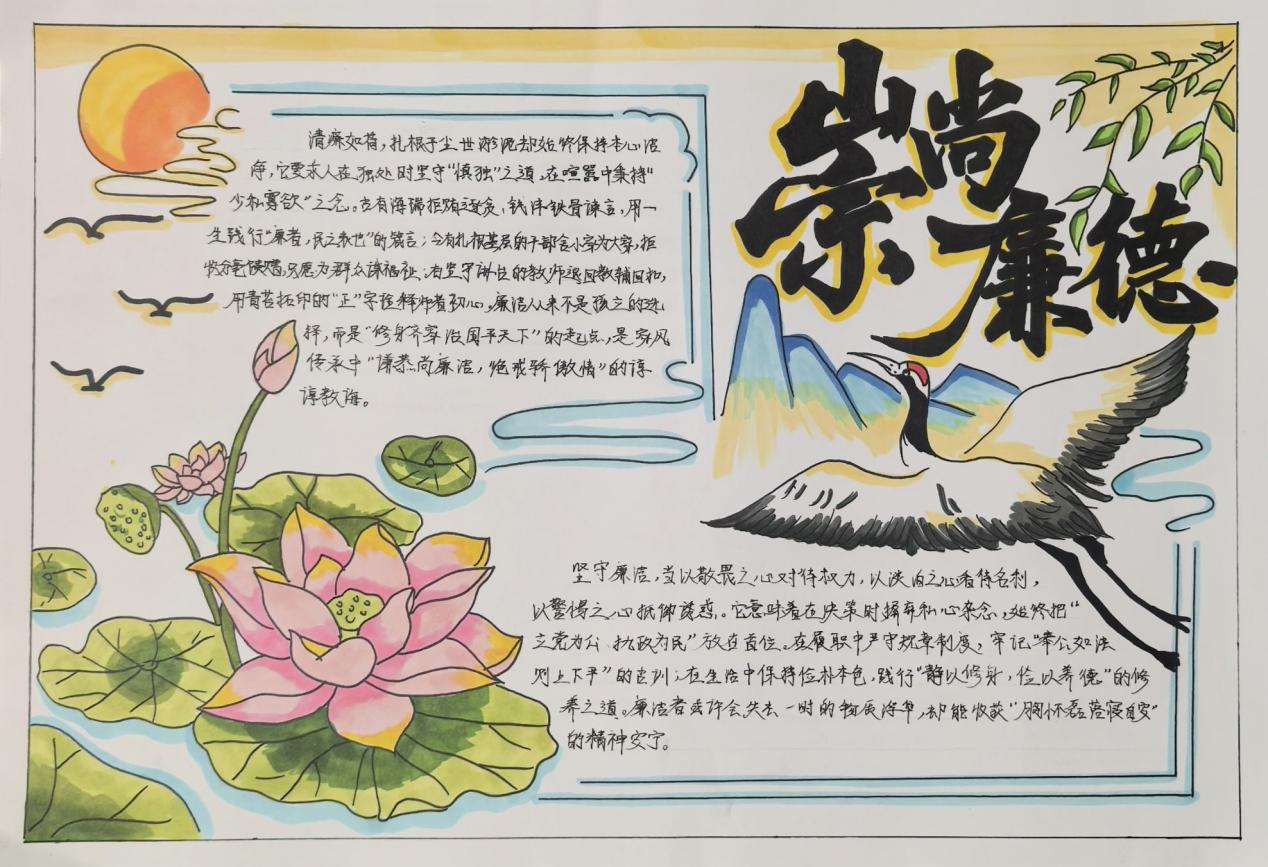 崇尚
廉德
清廉如荷，扎根于尘世淤泥却始终保持本心洁
净，它要求人在独处时坚守“慎独”之道，在喧嚣中秉持“
少私寡欲”之念。古有海瑞拒贿，钱铁骨谏言，用一
生践行“廉者，民之表也”的箴言；今有扎根基层的干部舍小家为大家，拒
收分毫馈赠，只愿为群众谋福祉；有坚守讲台的教师退回教辅回扣，
用青苔拓印的“正”字诠释师者初心，廉洁从来不是孤立的选
择，而是“修身齐家治国平天下”的起点，是家风
传承中“谦恭尚廉洁，绝戒骄傲情”的谆
谆教诲。
坚守廉洁，当以敬畏之心对待权力，以淡泊之心看待名利，
以警惕之心抵御诱惑。它意味着在决策时摒弃私心杂念，始终把“
立党为公、执政为民”放在首位。在履职中严守规章制度，牢记“奉公如法
则上下平”的古训；在生活中保持俭朴本色，践行“静以修身，俭以养德”的修
养之道。廉洁者或许会失去一时的物质，却能收获“胸怀磊落寝自安”
的精神安宁。